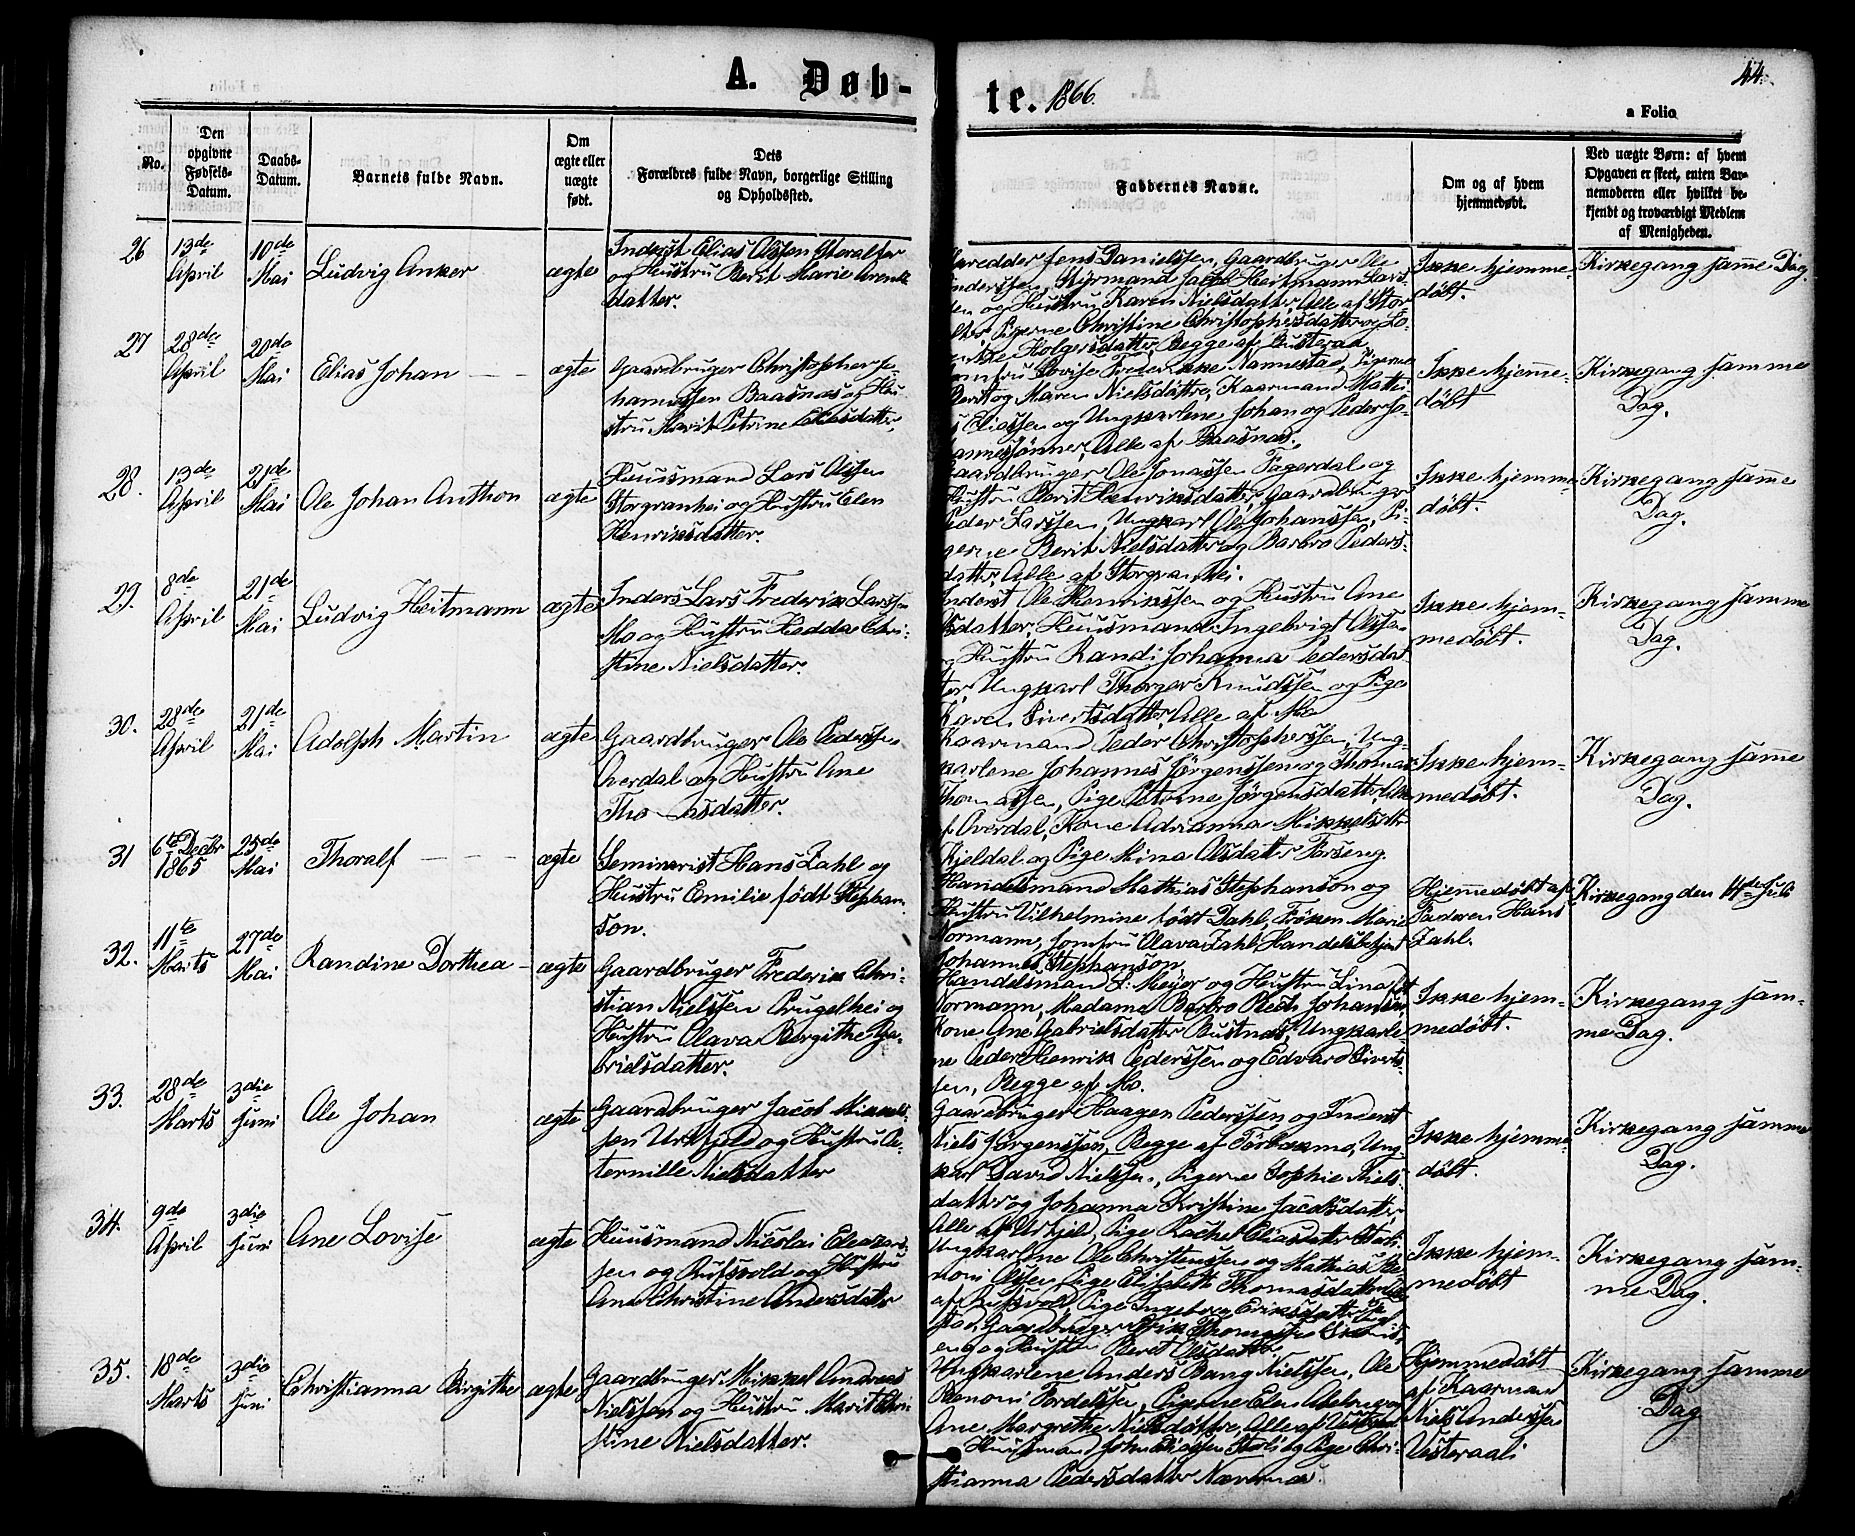 A. Døb-
te. 1866.
44.
a Folio
No.
Den opgivne Fødsels-Datum.
Daabs-Datum.
Barnets fulde Navn.
Om ægte eller uægte født.
Dets Forældres fulde Navn, borgerlige Stilling og Opholdssted.
Faddernes Navne.
Om og af hvem hjemmedøbt.
Ved uægte Børn: af hvem Opgaven er skeet, enten Barnemoderen eller hvilket bekjendt og troværdigt Medlem af Menigheden.
26
13de April
10de Mai
Ludvig Anker
ægte
Inderst Elias Olssen Storalter
og Hustru Berit Marie Arents
datter.
Jens Danielssen, Gaardbruger Ole
Anderssen, Styrmand Jakob Heitmann Lars-
sen og Hustru Karen Nielsdatter, Alle af Stor-
alter, Pigerne Christine Christophersdatter og Lo-
Holgersdatter, Begge af
Ikke hjemme-
døbt.
Kirkegang samme Dag.
27
28de April
20de Mai
Elias Johan
ægte
Gaardbruger Christopher Jo-
hannessen Baasnas og Hu-
stru Marit Petrine Eliasdatter.
Jomfru Lovise Frederikke Nannestad, Pigerne
Berit og Maren Nielsdøttre, Kaarmand Mathi-
as Eliassen og Ungkarlene Johan og Peder Jo-
hannessønner, Alle af Baasnas.
Ikke hjemme-
døbt
Kirkegang samme
Dag.
28.
13de April
21de Mai
Ole Johan Anthon
ægte
Huusmand Lars Olssen
Storgranhei og Hustru Elen
Henriksdatter.
Gaardbruger Ole Jonassen Fagerdal og
Hustru Berit Henriksdatter, Gaardbruger
Peder Larssen, Ungkarl Ole Johanssen, Pi-
gerne Berit Nielsdatter og Barbro Peders-
datter, Alle af Storgranhei.
Ikke hjemme-
døbt.
Kirkegang samme
Dag.
29.
8de April
21de Mai
Ludvig Heitmann
ægte
Inders Lars Frederik Larssen
Mo og Hustru Hedda Chri-
stine Nielsdatter.
Inderst Ole Henrikssen og Hustru Ane
Olsdatter, Huusmand Ingebrigt Olssen
og Hustru Randi Johanna Pedersdat-
ter, Ungkarl Thorger Knudssen og Pige
Karen Sivertsdatter, Alle af Mo
Ikke hjem-
medøbt.
Kirkegang samme
Dag.
30.
28de April
21de Mai
Adolph Martin
ægte
Gaardbruger Ole Pederssen
Averdal og Hustru Ane
Thomasdatter.
Kaarmand Peder Christopherssen, Ung-
karlene Johannes Jørgenssen og Thomas
Thomassen, Pige Petrine Jørgensdatter, Alle
af Averdal, Kone Adrianna Mikkelsdtr
Kjeldal og Pige Mina Olsdatter Forseng.
Ikke hjem-
medøbt.
Kirkegang samme
Dag.
31
6te Decbr 1865
25de Mai
Thoralf
ægte
Seminarist Hans Zahl og
Hustru Emilie født Stephan-
son.
Handelsmand Mathias Stephanson og
Hustru Vilhelmine født Dahl, Frøken Marie
Normann, Jomfru Olava Zahl, Handelsbetjent
Johannes Stephanson
Hjemmedøbt af
Faderen Hans
Zahl.
Kirkegang den Juli
32.
11te Marts
27de Mai
Randine Dorthea
ægte
Gaardbruger Frederik Chri-
stian Nielssen Prugelhei og
Hustru Olava Bergithe Ga-
brielsdatter.
Handelsmand L. Meyer og Hustru Lina født
Normann, Madame Barbro Johansen,
Kone Ane Gabrielsdatter Bustnes, Ungkarle-
ne Peder Henrik Pederssen og Edvard Siverts-
sen, Begge af Mo.
Ikke hjem-
medøbt.
Kirkegang sam-
me Dag.
33.
28de Marts
3die Juni
Ole Johan
ægte
Gaardbruger Jacob Mikkels-
sen Urtfjeld og Hustru Pe-
ternille Nielsdatter
Gaardbruger Haagen Pederssen og Inderst
Niels Jørgenssen, Begge af Forbakmo, Ung-
karl David Nielssen, Pigerne Sophie Niels-
datter og Johanna Kristine Jacobsdatter,
Alle af Urtfjeld, Pige Rachel Eliasdatter
Ikke hjemme-
døbt.
Kirkegang samme
Dag.
34.
9de April
3die Juni
Ane Lovise
ægte
Huusmand Nicolai Eleazars-
sen og Rufsvold og Hustru
Ane Christine Andersdatr
Ungkarlene Ole Christenssen og Mathias Be-
noni Olssen, Pige Elisabeth Thomasdatter, Alle
af Rufsvold, Pige Ingeborg Eriksdatter
Gaardbruger Erik Thomassen
og Hustru Berit Olsdatter
Ikke hjem-
medøbt
Kirkegang sam-
me Dag.
35.
18de Marts
3die Juni
Christianna Birgithe
ægte
Gaardbruger Mikkel Andreas
Nielssen og Hustru Marit Chri
stine Nielsdatter.
Ungkarlene Anders Bang Nielssen, Ole
Benoni Tordelssen, Pigerne Elen og
Ane Margrethe Nielsdøttre, Alle af
Huusmand John Eliassen og Pige Chri-
stianna Pedersdatter Nævernes.
Hjemmedøbt
af Kaarman
Niels Anderssen
Vesteraali
Kirkegang samme
Dag